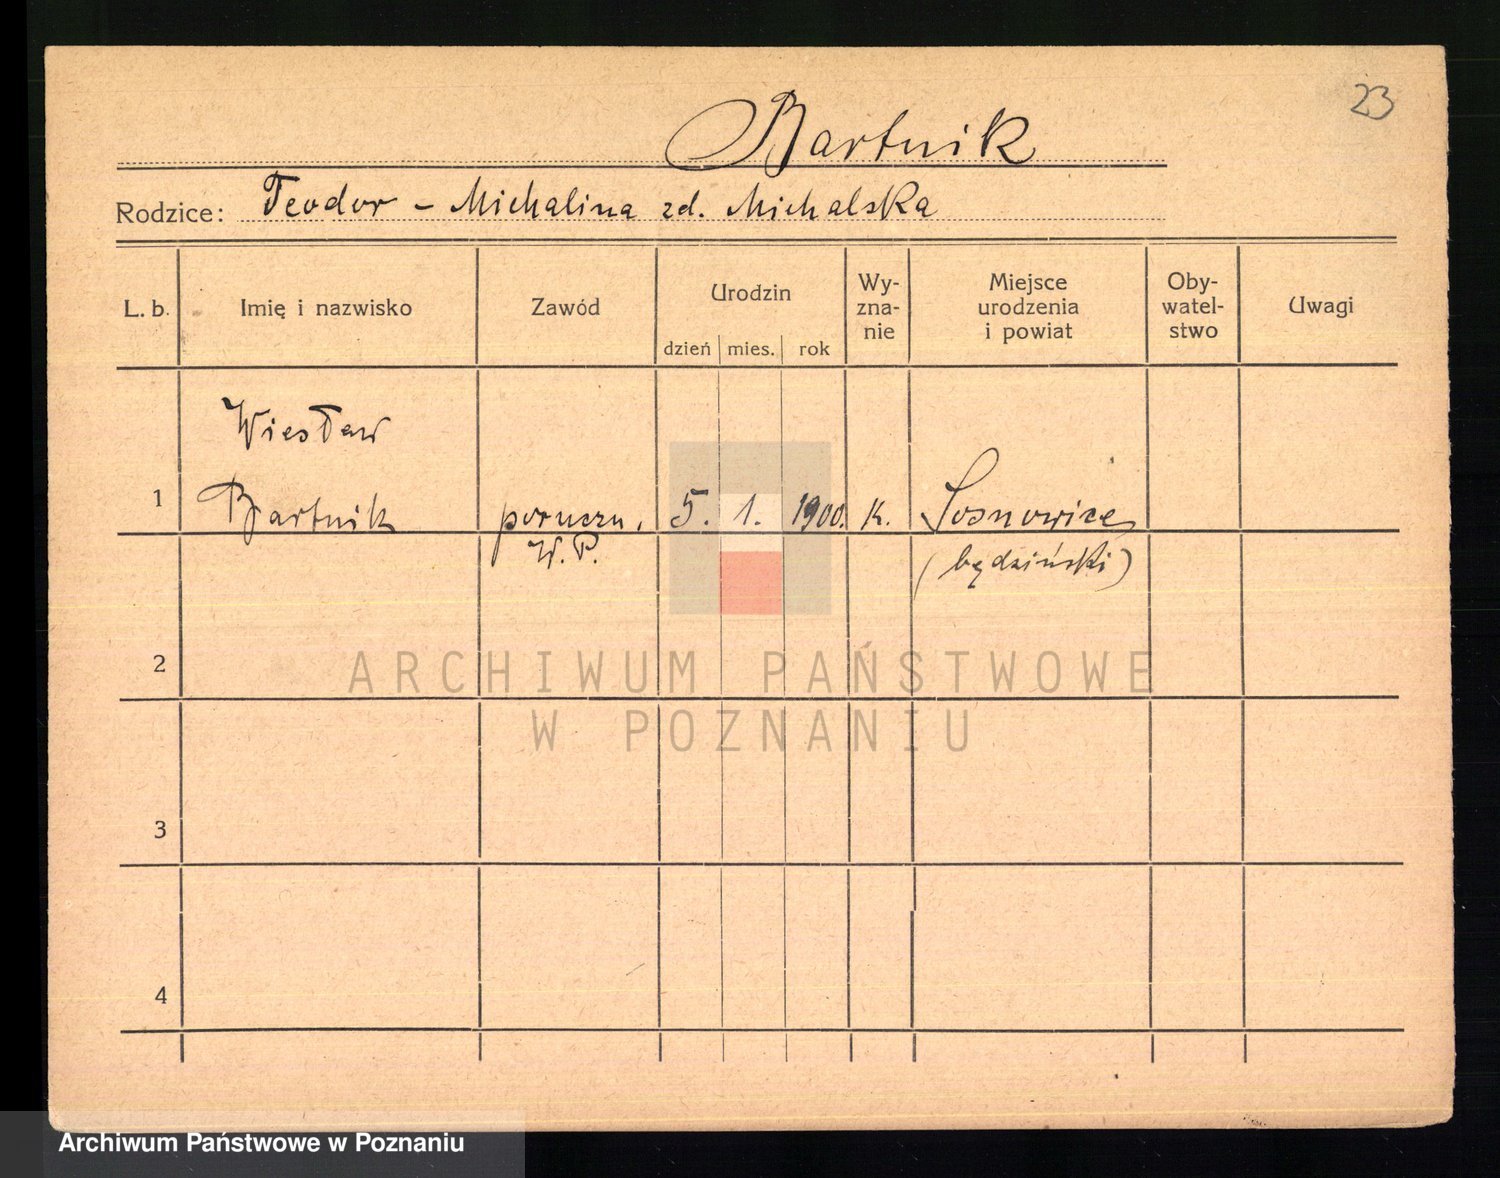 23
Bartnik
Rodzice: Teodor – Michalina zd. Michalska
L. b. Imię i nazwisko Zawód Urodzin dzień mies. rok Wy-zna-nie Miejsce urodzenia i powiat Oby-watel-stwo Uwagi
Wiesław
1 Bartnik poruczn. 5. 1. 1900. k. Sosnowice
W.P. (będziński)
2
ARCHIWUM PAŃSTWOWE
W POZNANIU
3
4
Archiwum Państwowe w Poznaniu